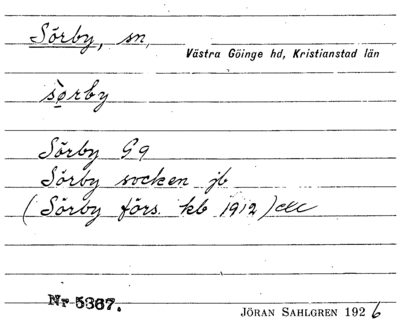 Sörby, sn,
Västra Göinge hd, Kristianstad län
sö̀rby
Sörby G9
Sörby socken jb
(Sörby förs. kb 1912) etc
Nr 5367.
JÖRAN SAHLGREN 1926